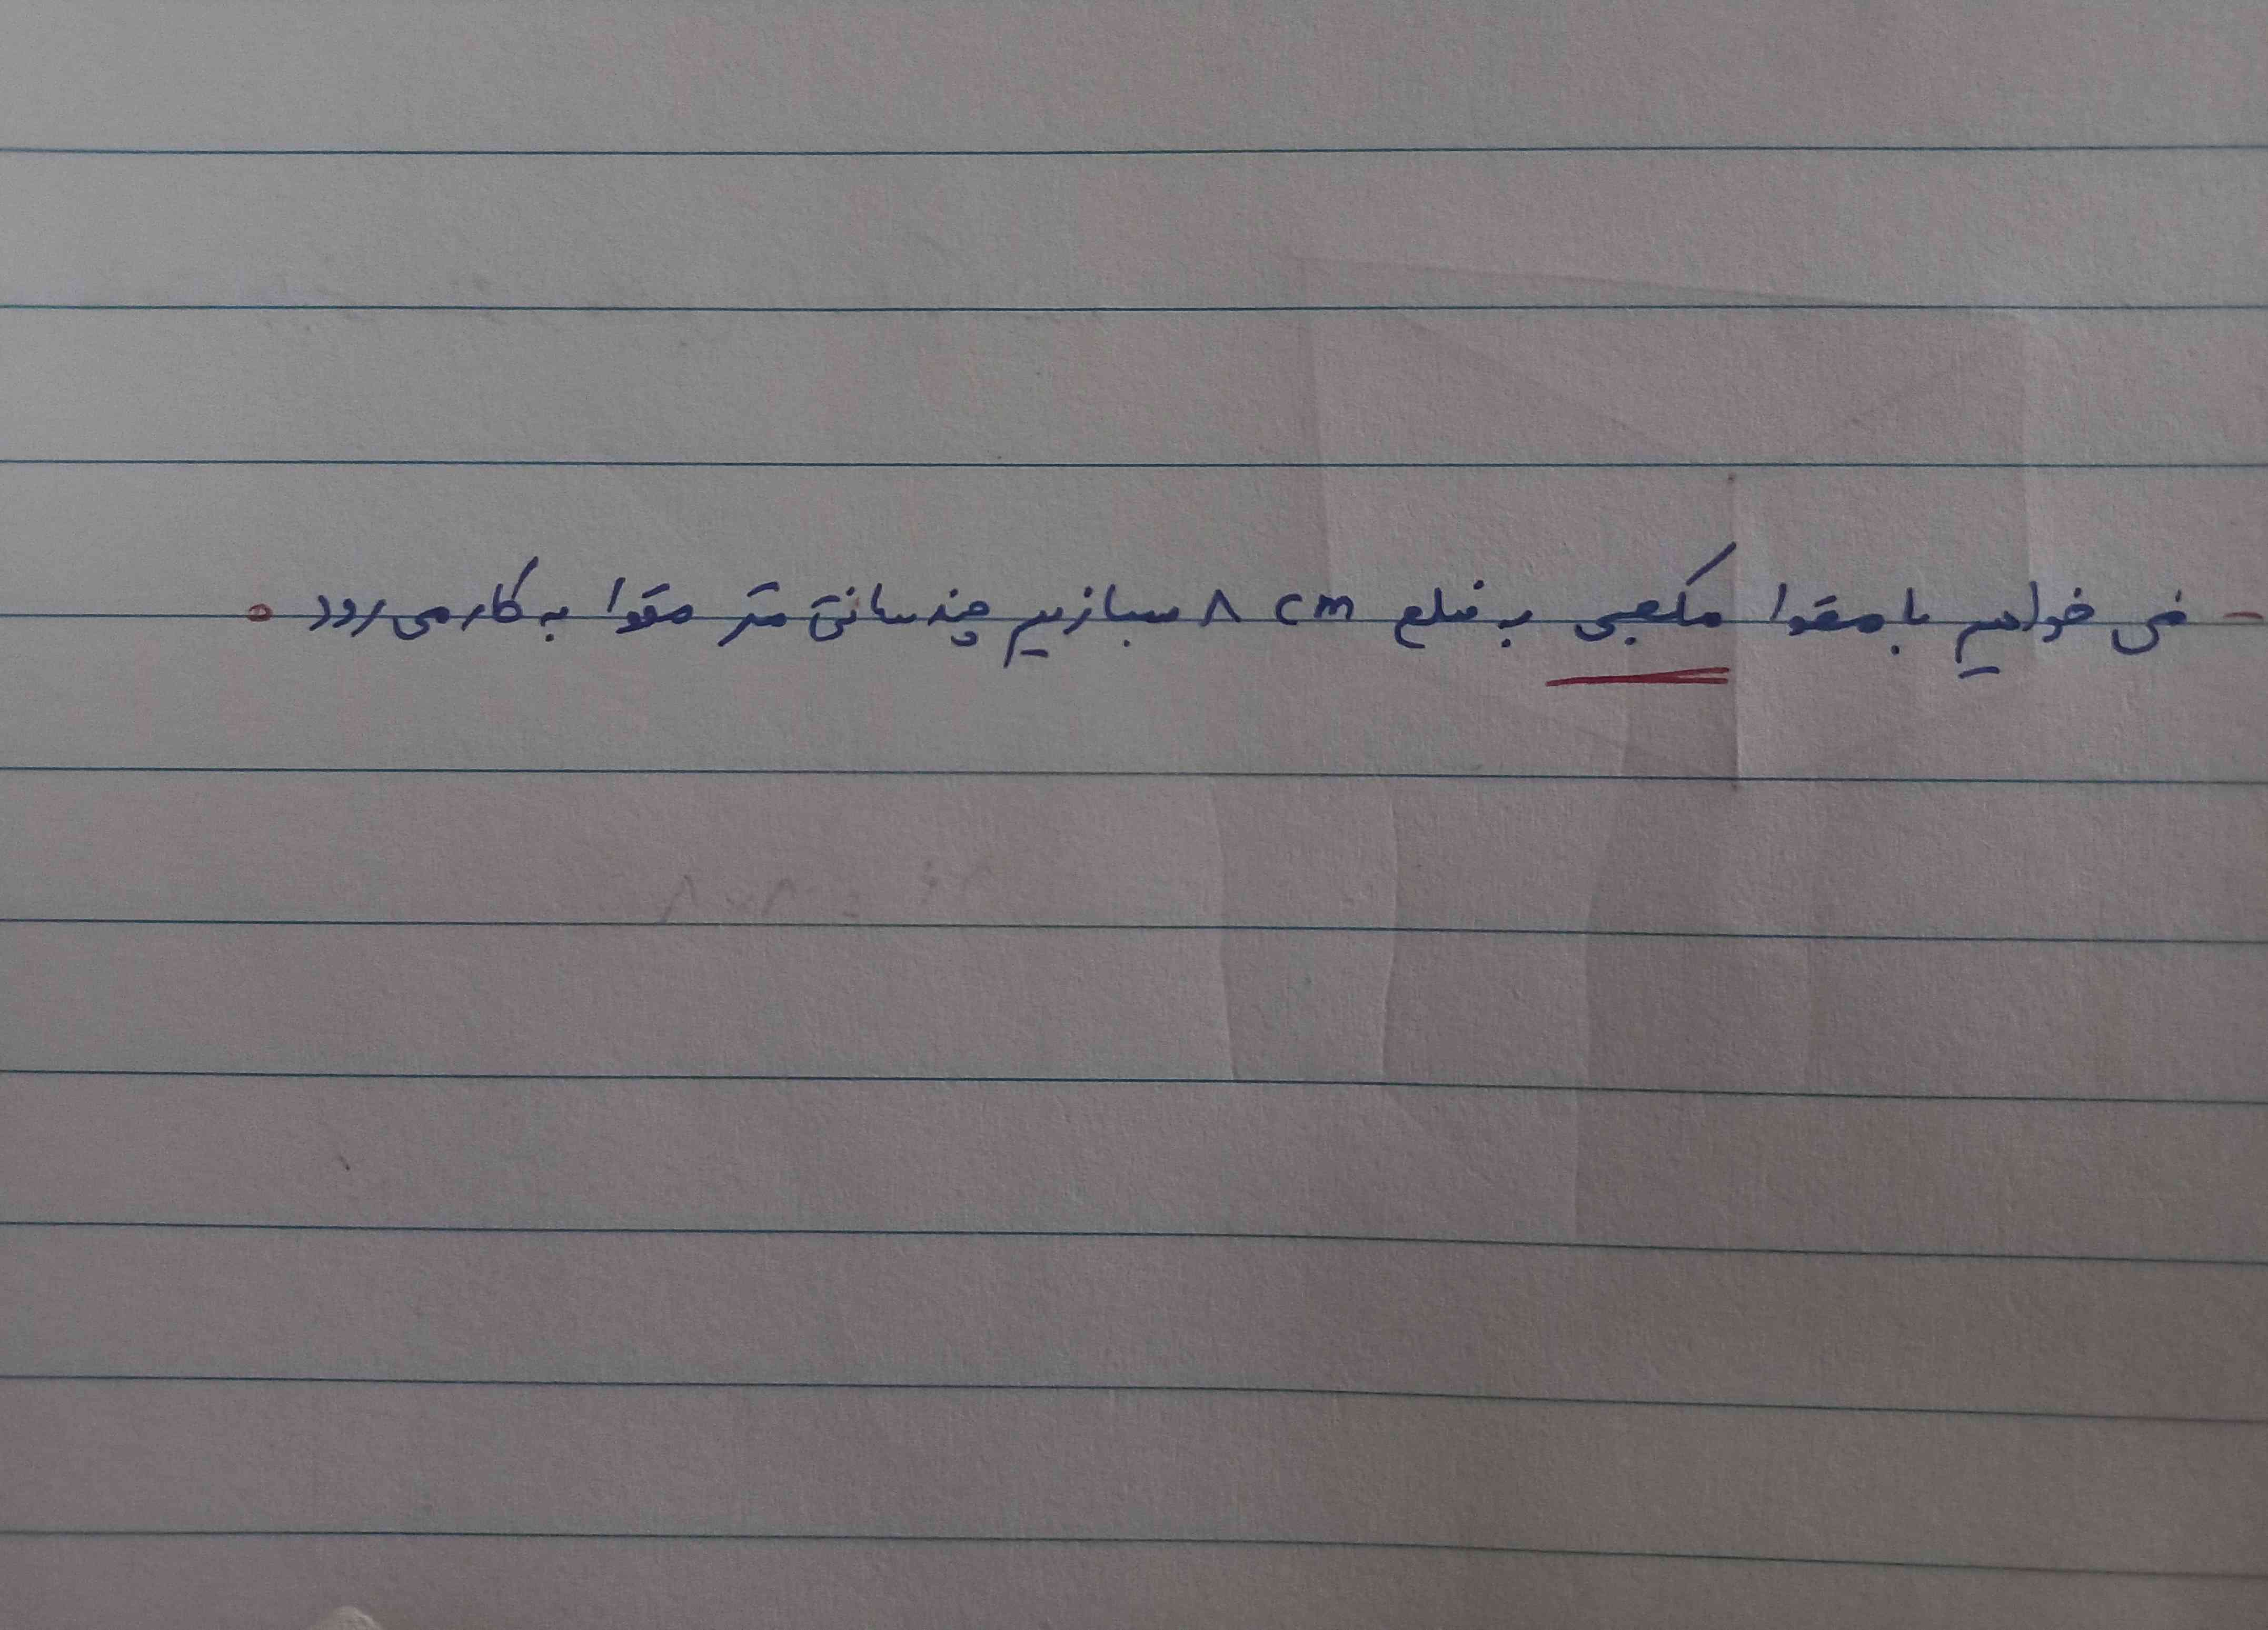 - می خواهیم با مقوا مکعبی به ضلع ۸ cm بسازیم چند سانتی متر مقوا به کار می رود .
۸ × ۸ = ۶۴